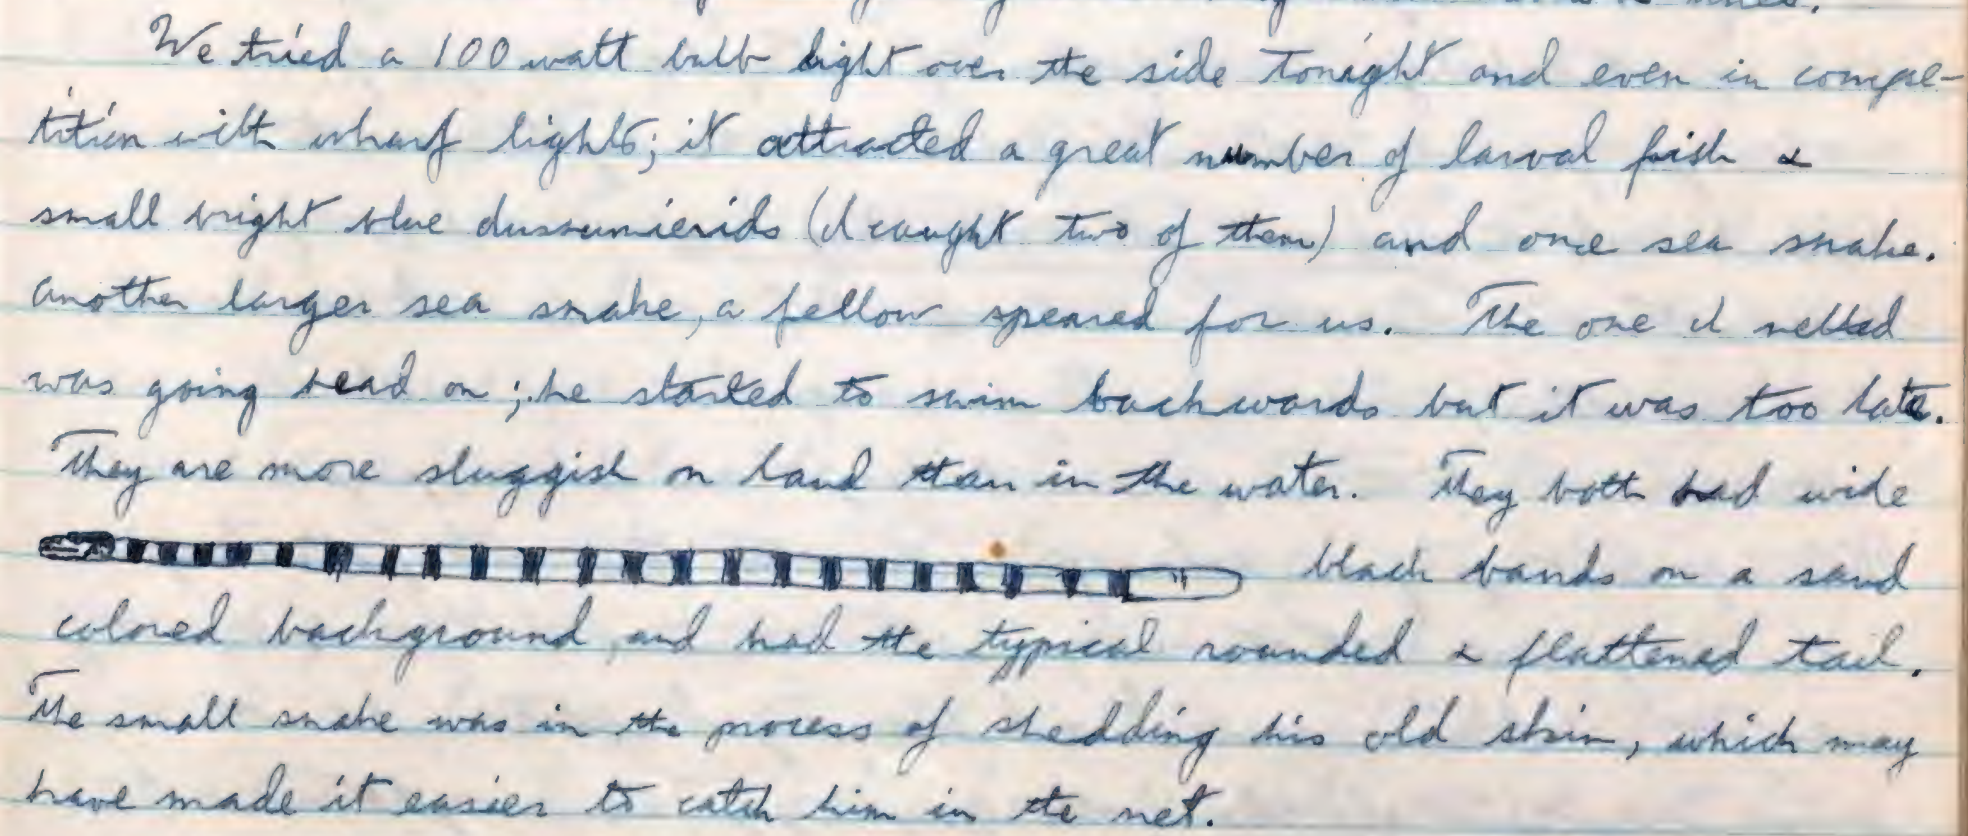 We tried a 100 watt bulb light over the side tonight and even in compe-
tition with wharf lights; it attracted a great number of larval fish &
small bright blue dussumierids (I caught two of them) and one sea snake.
Another larger sea snake, a fellow speared for us. The one I netted
was going head on; he started to swim backwards but it was too late.
They are more sluggish on land than in the water. They both had wide
black bands on a sand
colored background, and had the typical rounded & flattened tail.
The small snake was in the process of shedding his old skin, which may
have made it easier to catch him in the net.